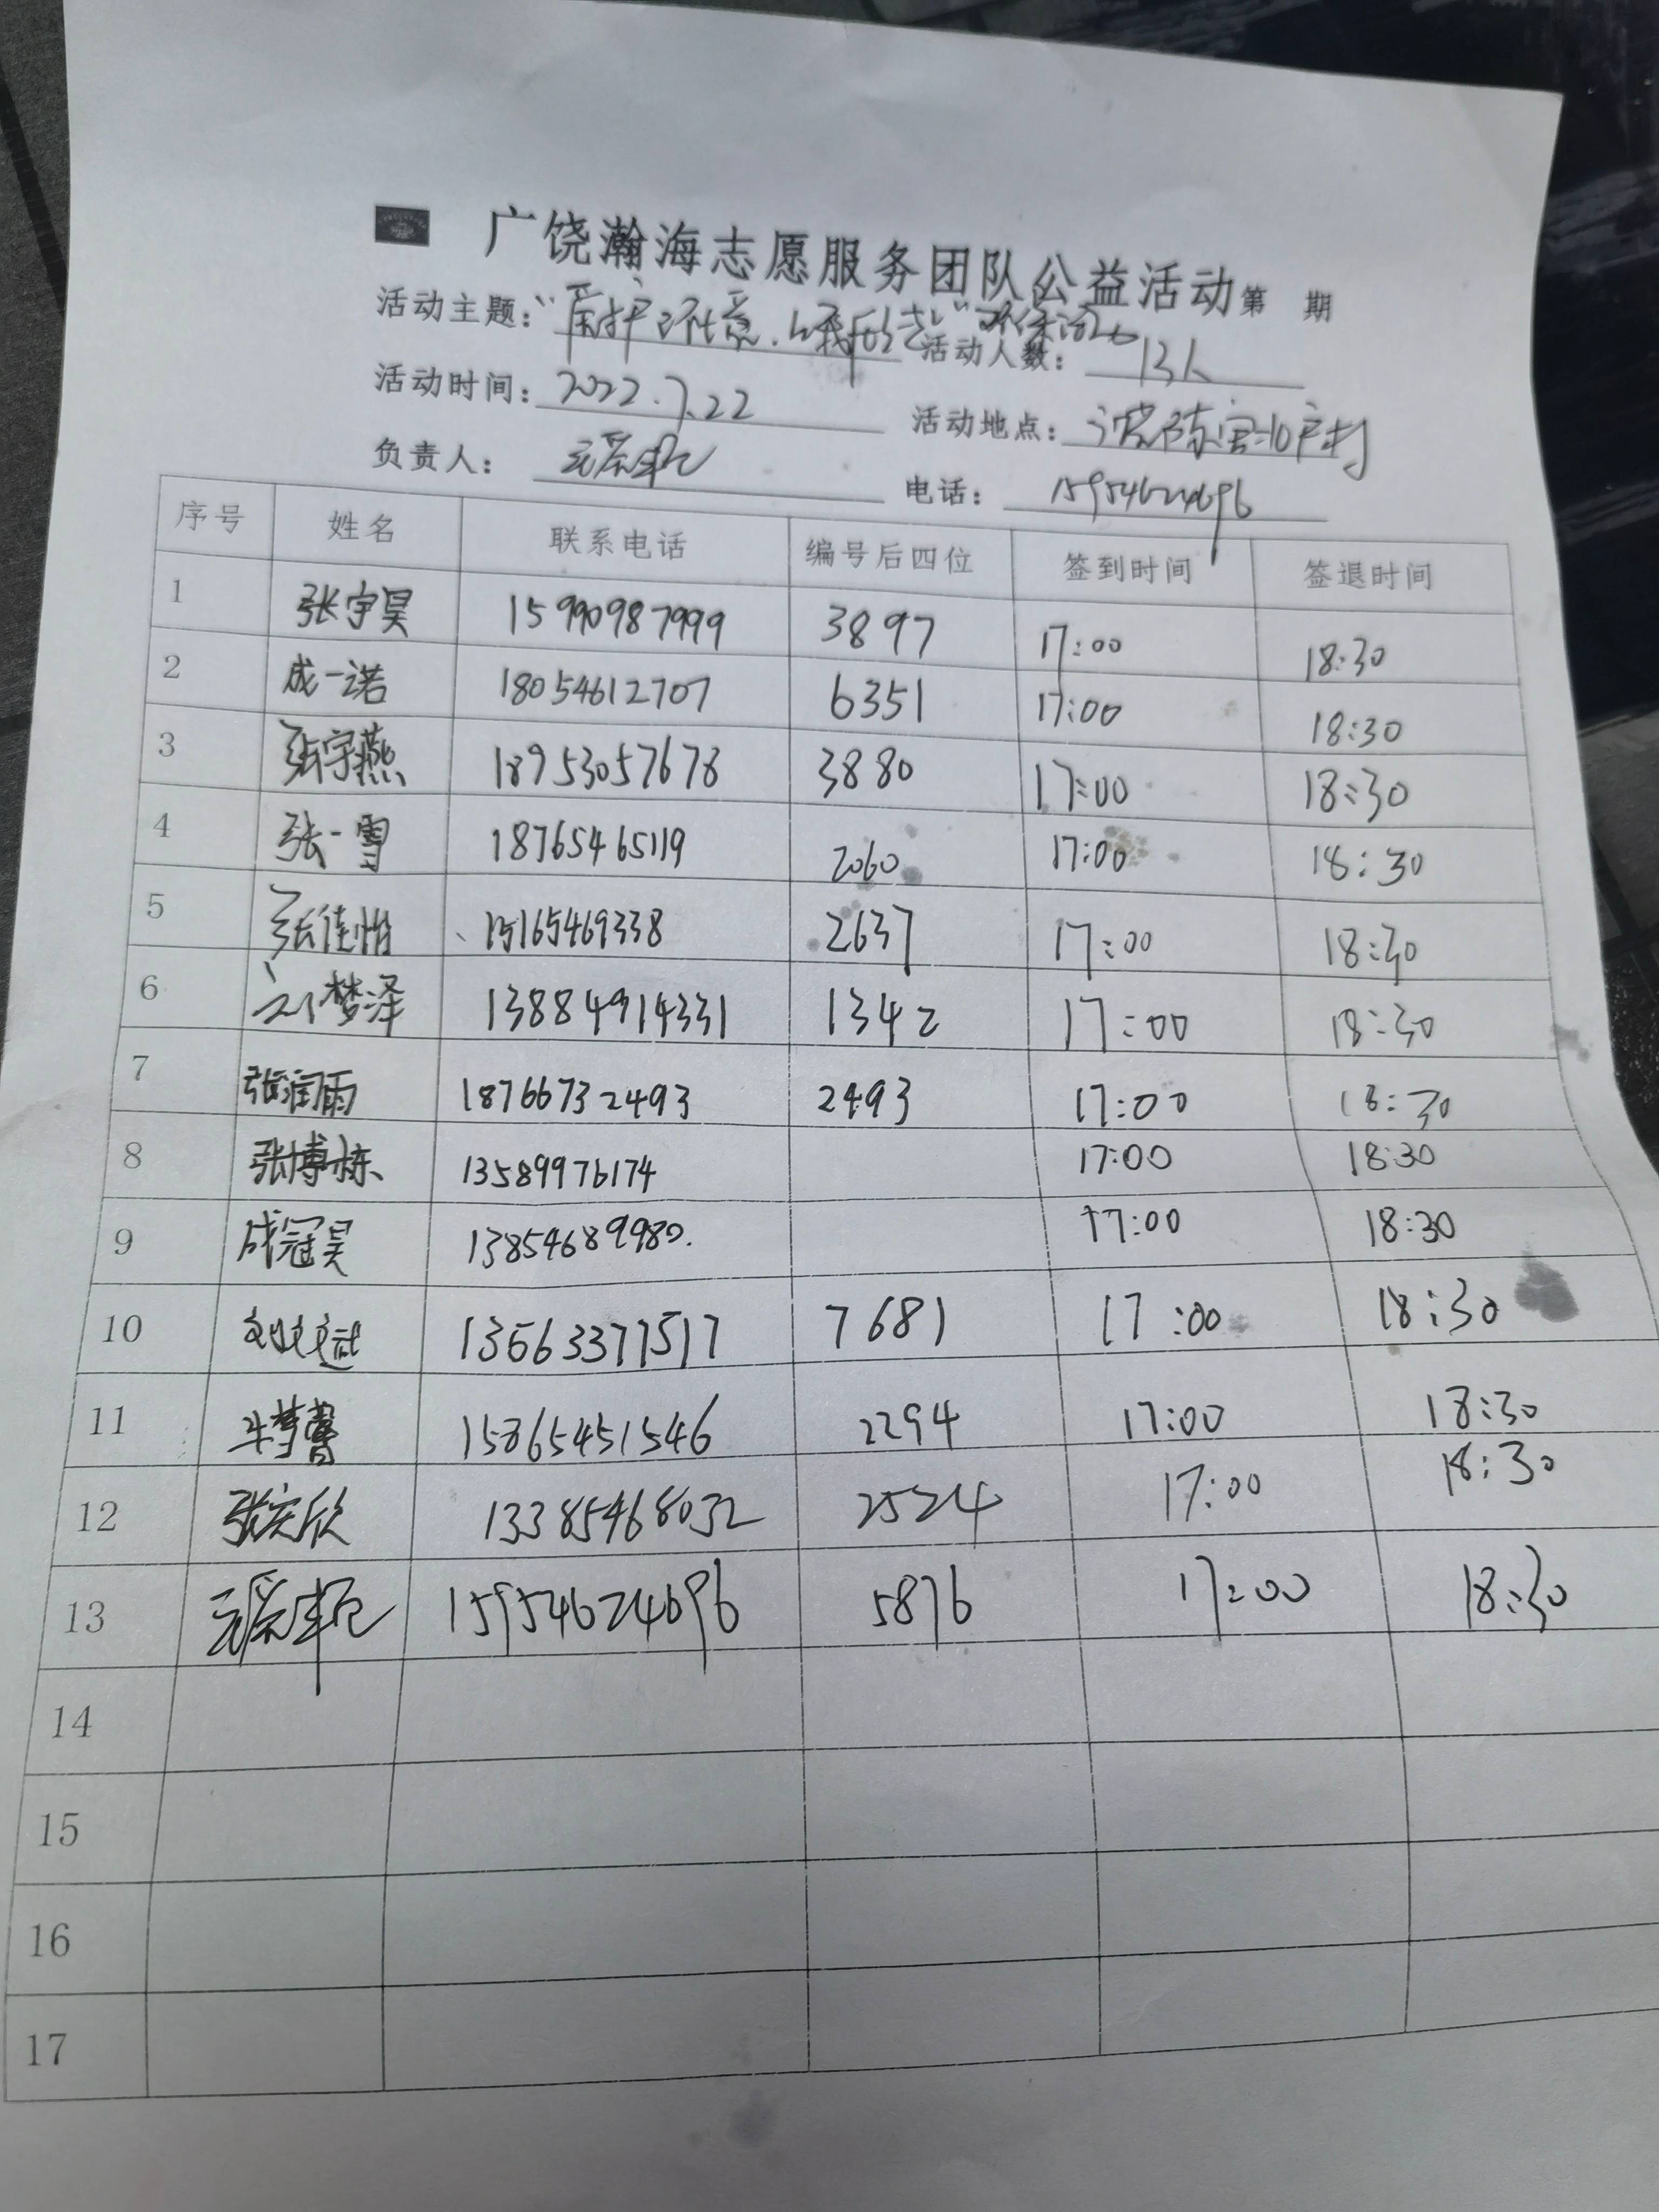 广饶瀚海志愿服务团队公益活动第 期
活动主题：“爱护环境，从我做起” 环保活动
活动人数：13人
活动时间：2022.7.22
活动地点：广饶陈官
负责人：
电话：15954624696
序号 姓名 联系电话 编号后四位 签到时间 签退时间
1 张宇昊 15990987999 3897 17:00 18:30
2 成一诺 18054612707 6351 17:00 18:30
3 张宇燕 18953057678 3880 17:00 18:30
4 张一雪 18765465119 2060 17:00 18:30
5 张佳怡 15165469338 2637 17:00 18:30
6 刘梦泽 13884914331 1342 17:00 18:30
7 张润雨 18766732493 2493 17:00 18:30
8 张博栋 13589976174 17:00 18:30
9 成冠昊 13854689980. 17:00 18:30
10 13563377517 7681 17:00 18:30
11 15865451546 2294 17:00 18:30
12 张宏欣 13385468032 2524 17:00 18:30
13 15954624696 5876 17:00 18:30
14
15
16
17